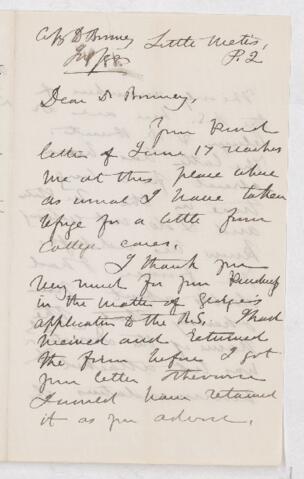 Little Metis,
P.Q
Dear Dr Bonney,
Your kind
letter of June 17 reaches
me at this place where
as usual I have taken
refuge for a little from
College cares.
I thank you
very much for your kindness
in the matter of George's
application to the R.S. I had
received and returned
the form before I got
your letter otherwise
I would have retained
it as you advise.